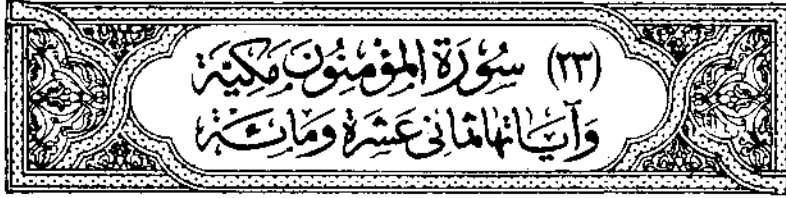 (٢٣) سُورَةُ المؤْمِنُونَ مَكِيَّة
وَآيَاتُهَا ثَمَانِى عَشْرَةَ وَمِائَة